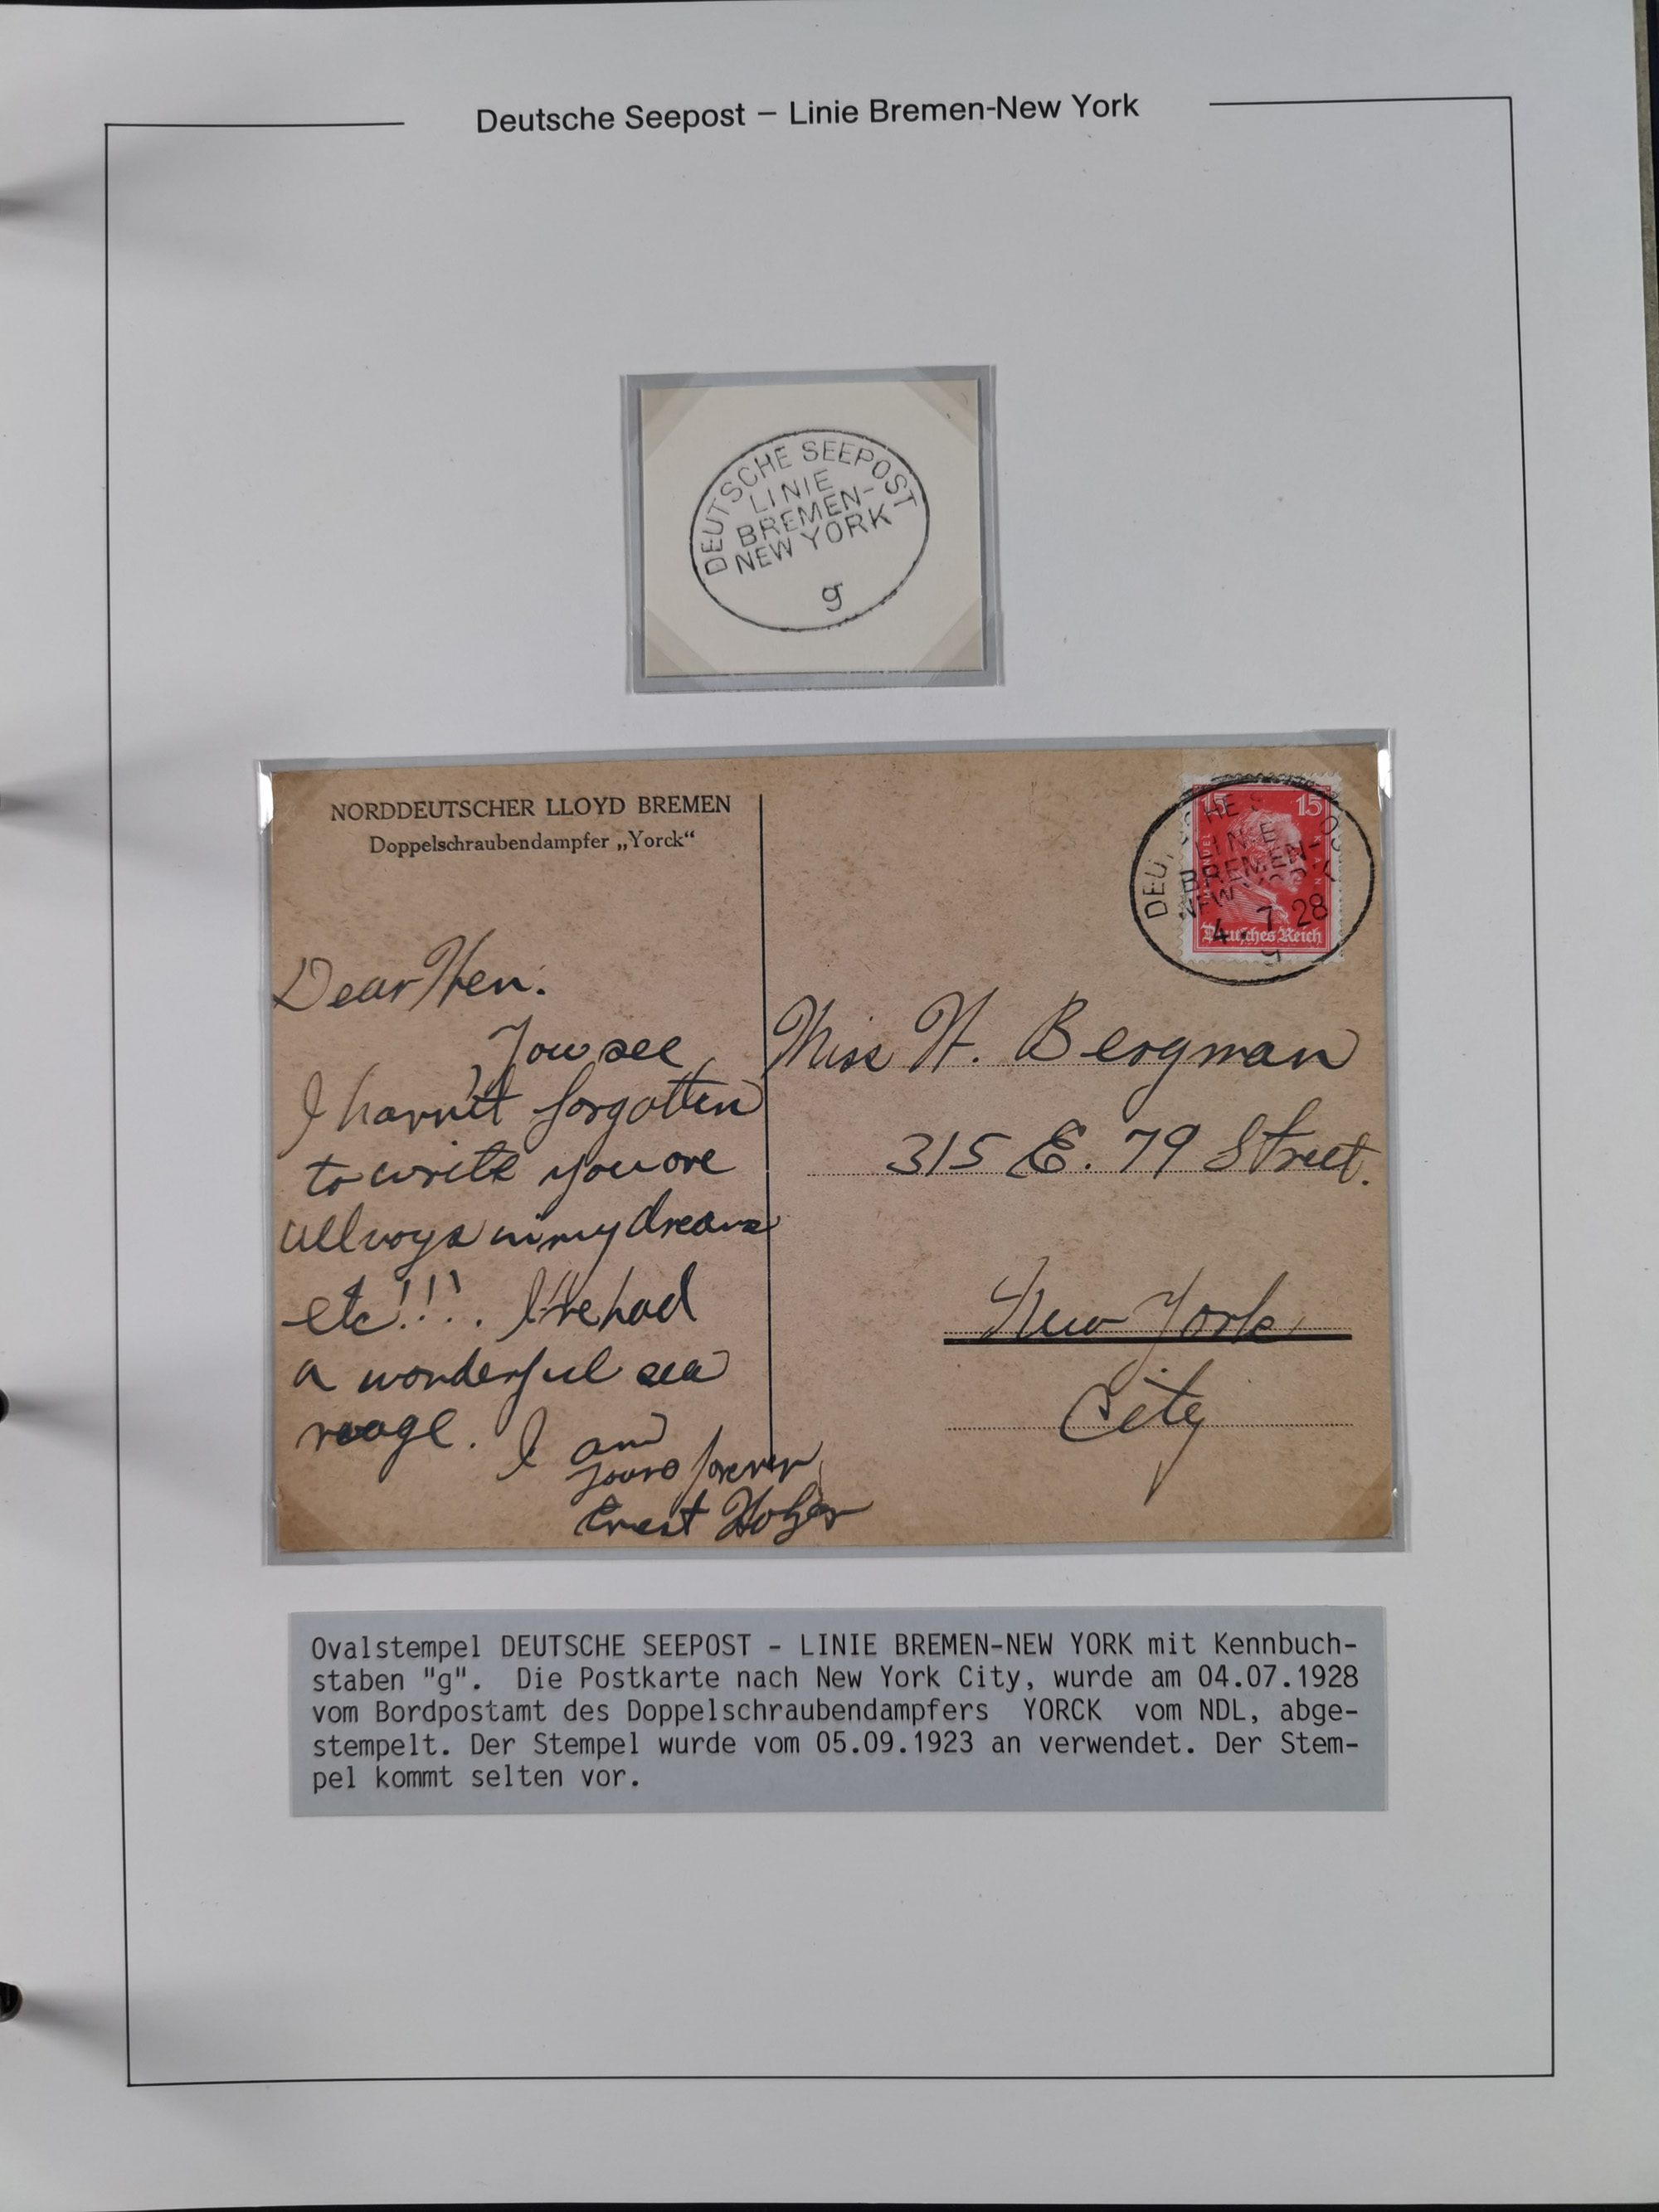 Deutsche Seepost – Linie Bremen-New York
DEUTSCHE SEEPOST
LINIE
BREMEN-
NEW YORK
g
NORDDEUTSCHER LLOYD BREMEN
Doppelschraubendampfer „Yorck“
15 15
Deutsches Reich
LINIE
BREMEN-
4. 7 28
g
Dear Hen:
You see
I havn't forgotten
to write you are
allways in my dreams
etc!!!. I've had
a wonderful sea
voage. I am
yours forever
Ernest
Miss H. Bergman
315 E. 79 Street.
New York
City
Ovalstempel DEUTSCHE SEEPOST - LINIE BREMEN-NEW YORK mit Kennbuch-
staben "g". Die Postkarte nach New York City, wurde am 04.07.1928
vom Bordpostamt des Doppelschraubendampfers YORCK vom NDL, abge-
stempelt. Der Stempel wurde vom 05.09.1923 an verwendet. Der Stem-
pel kommt selten vor.